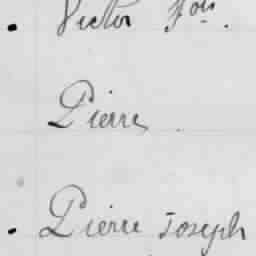 Victor fois.
Pierre
Pierre Joseph